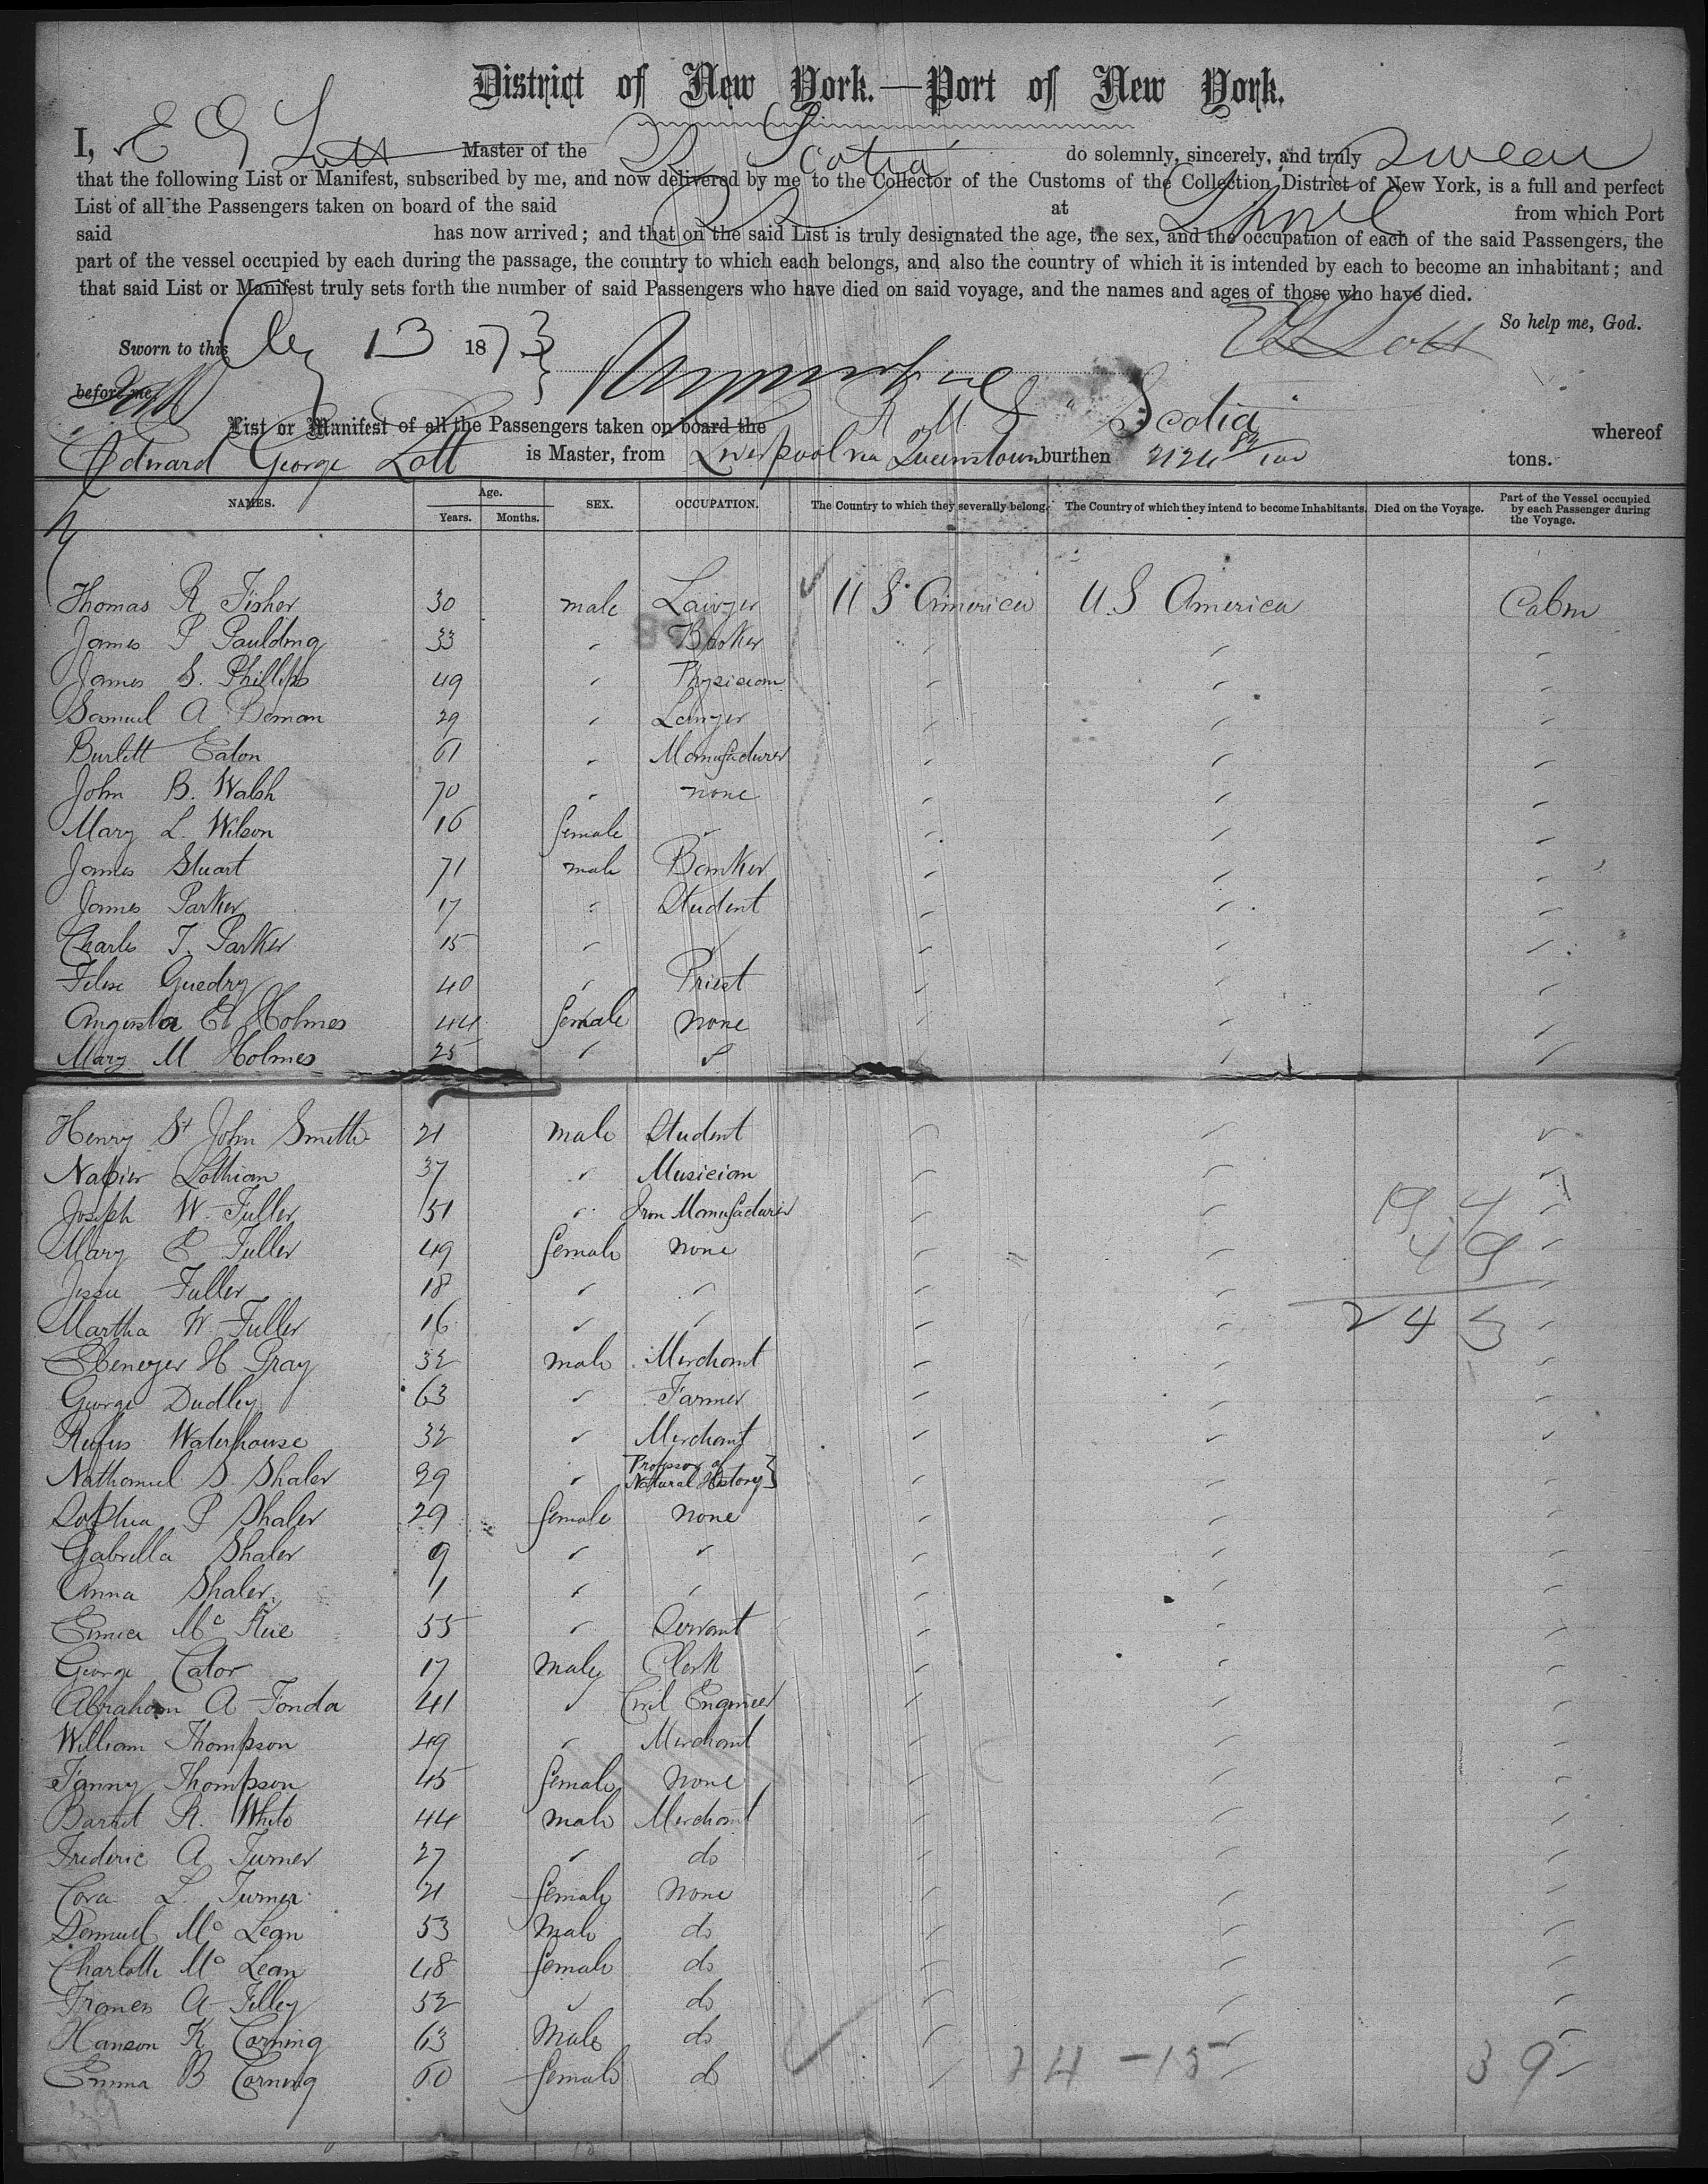 District of New York.—Port of New York.
I, E G Lott Master of the R S Scotia do solemnly, sincerely, and truly swear
that the following List or Manifest, subscribed by me, and now delivered by me to the Collector of the Customs of the Collection District of New York, is a full and perfect
List of all the Passengers taken on board of the said at from which Port
said has now arrived; and that on the said List is truly designated the age, the sex, and the occupation of each of the said Passengers, the
part of the vessel occupied by each during the passage, the country to which each belongs, and also the country of which it is intended by each to become an inhabitant; and
that said List or Manifest truly sets forth the number of said Passengers who have died on said voyage, and the names and ages of those who have died.
So help me, God.
Sworn to this 13 1873 E G Lott
before me,
List or Manifest of all the Passengers taken on board the R M S " Scotia " whereof
Edward George Lott is Master, from Liverpool via Queenstown burthen 2124 82/100 tons.
NAMES. Age. Years. Months. SEX. OCCUPATION. The Country to which they severally belong. The Country of which they intend to become Inhabitants. Died on the Voyage. Part of the Vessel occupied by each Passenger during the Voyage.
Thomas R Fisher 30 male Lawyer U S America U.S America Cabin
James P Paulding 33 " Banker " " "
James S. Phillips 49 " Physician " " "
Samuel A Beman 29 " Lawyer " " "
Burlett Eaton 61 " Manufacturer " " "
John B. Walsh 70 " none " " "
Mary L. Wilson 16 female " " " "
James Stuart 71 male Banker " " "
James Parker 17 " Student " " "
Charles T. Parker 15 " " " " "
Felix Guedry 40 " Priest " " "
Augusta E Holmes 44 female none " " "
Mary M Holmes 25 " " " " "
Henry St John Smith 21 male Student " " "
Napier Lothian 37 " Musician " " "
Joseph W. Fuller 51 " Iron Manufacturer " " 19 4 "
Mary E Fuller 49 female none " " 4 9 "
Jessie Fuller 18 " " " " "
Martha W Fuller 16 " " " " 2 4 3 "
Ebenezer H Gray 32 male Merchant " " "
George Dudley 63 " Farmer " " "
Rufus Waterhouse 32 " Merchant " " "
Nathaniel S. Shaler 29 " Professor of Natural History } " " "
Sophia P Shaler 29 female none " " "
Gabrella Shaler 9 " " " " "
Anna Shaler 1 " " " " "
Mc 55 " Servant " " "
George Cator 17 male Clerk " " "
Abraham A Fonda 41 " Civil Engineer " " "
William Thompson 49 " Merchant " " "
Fanny Thompson 45 female none " " "
Barnet R. White 44 male Merchant " " "
Frederic A Turner 27 " do " " "
Cora L. Turner 21 female none " " "
Mc Lean 53 Male do " " "
Charlotte Mc Lean 48 female do " " "
Frances A Filley 52 " do " " "
Hanson K Corning 63 Male do " " "
Emma B Corning 60 female do " 24 - 15 " 39 "